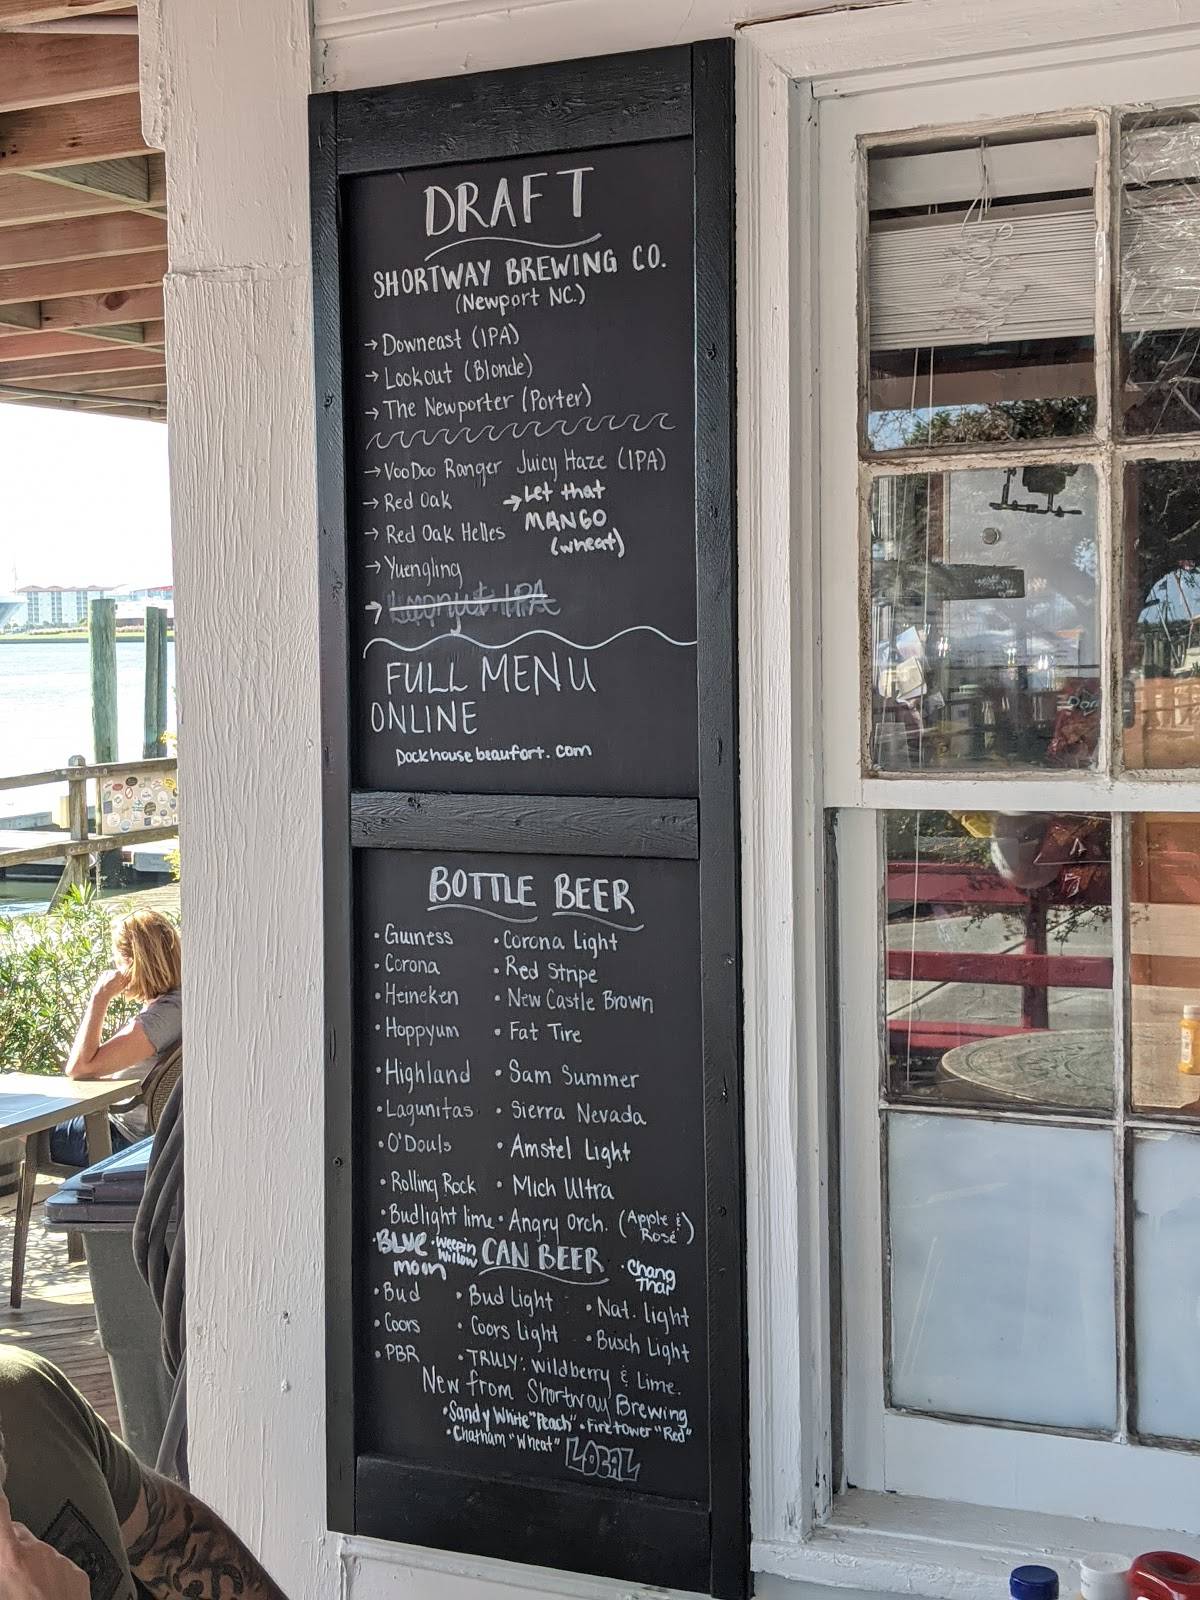 DRAFT
SHORTWAY BREWING CO.
(Newport NC.)
→ Downeast (IPA)
→ Lookout (Blonde)
→ The Newporter (Porter)
→ VooDoo Ranger Juicy Haze (IPA)
→ Red Oak
→ Let that
MANGO
(wheat)
→ Red Oak Helles
→ Yuengling
→ IPA
FULL MENU
ONLINE
Dockhousebeaufort.com
BOTTLE BEER
• Guinness • Corona Light
• Corona • Red Stripe
• Heineken • New Castle Brown
• Hoppyum • Fat Tire
• Highland • Sam Summer
• Lagunitas • Sierra Nevada
• O'Douls • Amstel Light
• Rolling Rock • Mich Ultra
• Budlight lime • Angry Orch. (Apple & Rosé)
• BLUE moon • Weepin Willow
CAN BEER
• Chang Thai
• Bud • Bud Light • Nat. light
• Coors • Coors Light • Busch Light
• PBR • TRULY: Wildberry & Lime.
New from Shortway Brewing
• Sandy White "Peach" • Firetower "Red"
• Chatham "Wheat" LOCAL